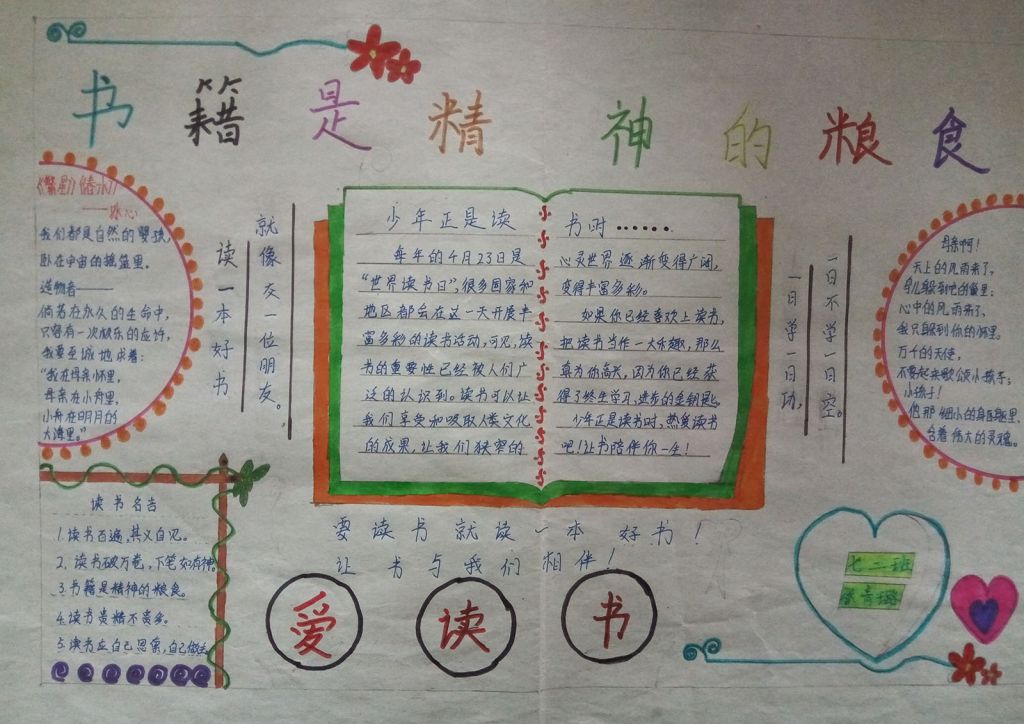 书籍是精神的粮食
《繁星》《春水》
——冰心
我们都是自然的婴孩，
卧在宇宙的摇篮里。
造物者———
倘若在永久的生命中，
只容有一次极乐的应许，
我要至诚地求着：
“我在母亲怀里，
母亲在小舟里，
小舟在明月的
大海里。”
读一本好书
就像交一位朋友。
少年正是读书时……
每年的4月23日是
“世界读书日”，很多国家和
地区都会在这一天开展丰
富多彩的读书活动，可见，读
书的重要性已经被人们广
泛的认识到。读书可以让
我们享受和吸取人类文化
的成果，让我们狭窄的
心灵世界逐渐变得广阔，
变得丰富多彩。
如果你已经喜欢上读书，
把读书当作一大乐趣，那么
真为你高兴，因为你已经获
得了终生学习，进步的金钥匙。
少年正是读书时，热爱读书
吧！让书陪伴你一生！
一日学一日功，
一日不学一日空。
母亲啊！
天上的风雨来了，
鸟儿躲到它的巢里；
心中的风雨来了，
我只躲到你的怀里。
万千的天使，
不要起来歌颂小孩子；
小孩子！
他那细小的身躯里，
含着伟大的灵魂。
读书名告
1.读书百遍，其义自见。
2.读书破万卷，下笔如有神。
3.书籍是精神的粮食。
4.读书贵精不贵多。
5.读书应自己思索，自己做主
要读书就读一本好书！
让书与我们相伴！
爱读书
七二班